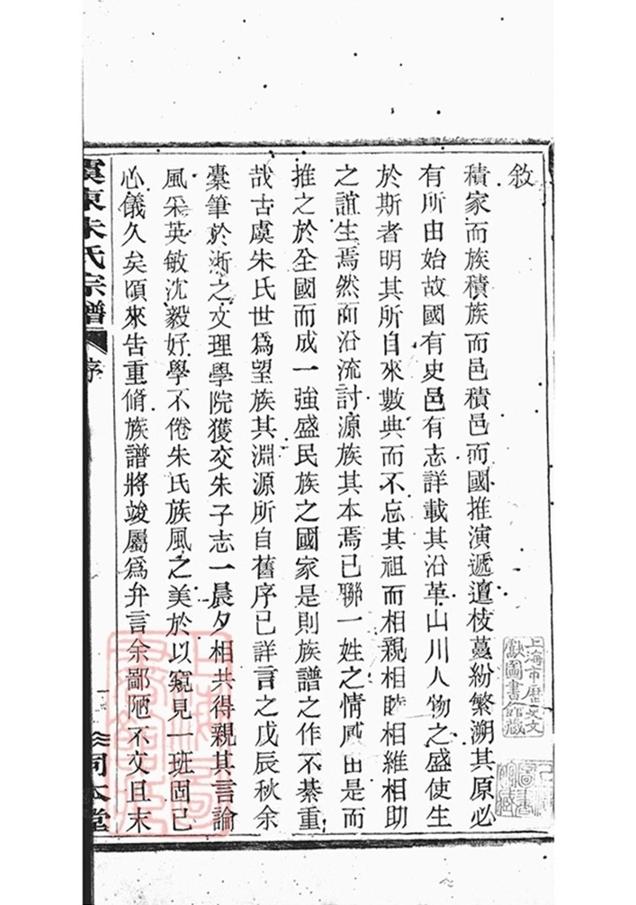 敘
積家而族積族而邑積邑而國推演遞邅枝蔓紛繁溯其原必
有所由始故國有史邑有志詳載其沿革山川人物之盛使生
於斯者明其所自來數典而不忘其祖而相親相睦相維相助
之誼生焉然而沿流討源族其本焉已聯一姓之情感由是而
推之於全國而成一強盛民族之國家是則族譜之作不綦重
哉古虞朱氏世爲望族其淵源所自舊序已詳言之戊辰秋余
橐筆於浙之文理學院獲交朱子志一晨夕相共得親其言論
風采英敏沈毅好學不倦朱氏族風之美於以窺見一班固已
心儀久矣頃來告重脩族譜將竣屬爲弁言余鄙陋不文且末
虞東朱氏宗譜 序 一 同本堂
上海市歷史文
獻圖書館藏